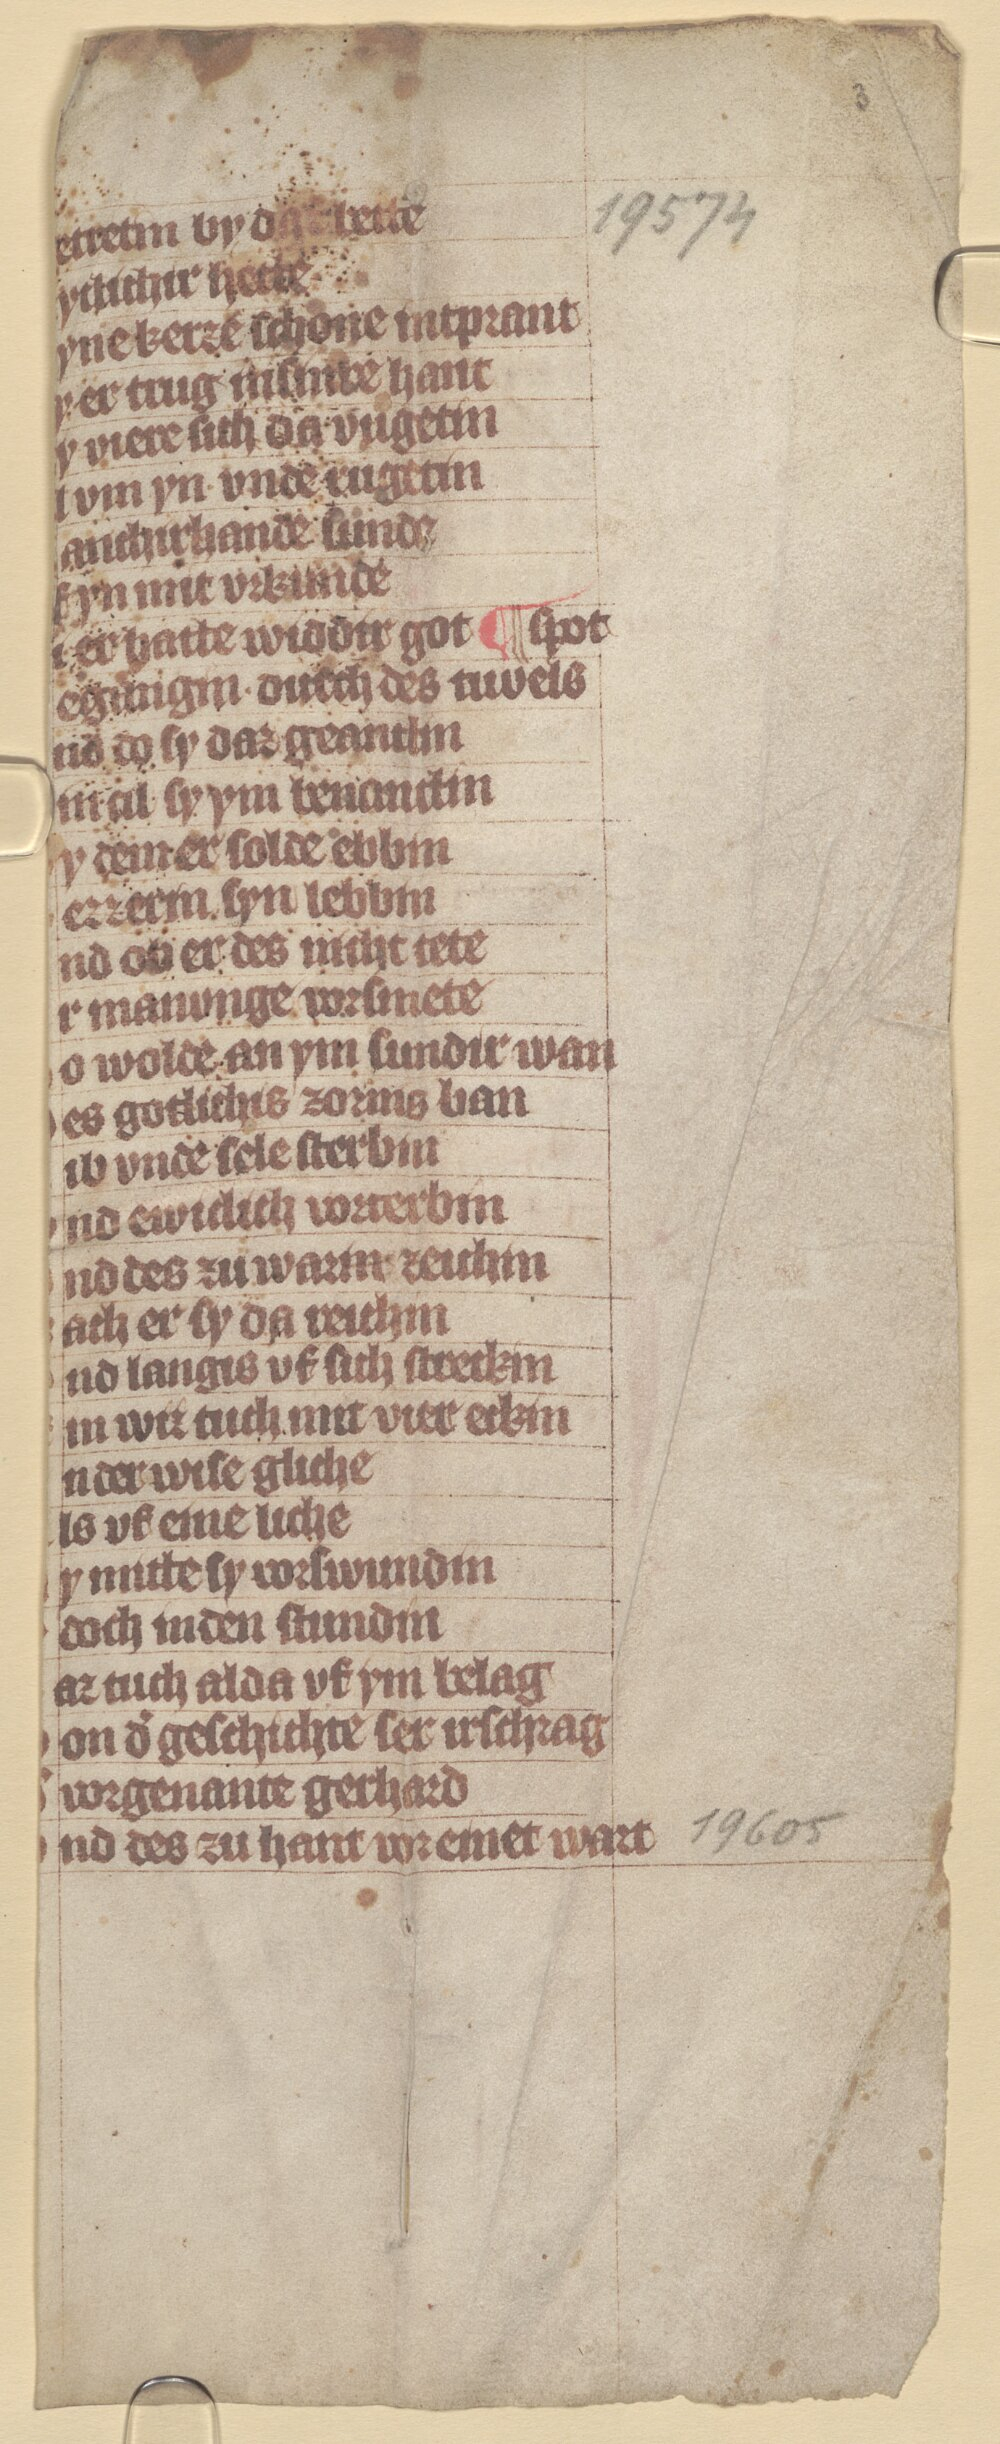 3
etretin by daz bette 19574
ytlichir hette
yne kerze schone intprant
y er trug insinre hant
y viere sich da vugetin
l vm yn vnde rugetin
anchirhande sunde
f yn mit vrkunde
t er hatte widdir got ¶ spot
egangin durch des tuvels
nd do sy daz geantin
m al sy ym benantin
y dem er solde ebbin
erzerin syn lebbin
nd ob er des nicht tete
r manunge vorsmete
o wolde an ym sundir wan
es gotlichis zornis ban
ib vnde sele sterbin
nd ewiclich vorterbin
nd des zu warin zeichin
ach er sy da reichin
nd langis vf sich streckin
in wiz tuch mit vier eckin
n der wise gliche
ls vf eine liche
y mitte sy vorswundin
doch inden stundin
az tuch alda vf ym belag
on d' geschichte ser irschrag
vorgenante gerhard
nd des zu hant vor einet wart 19605